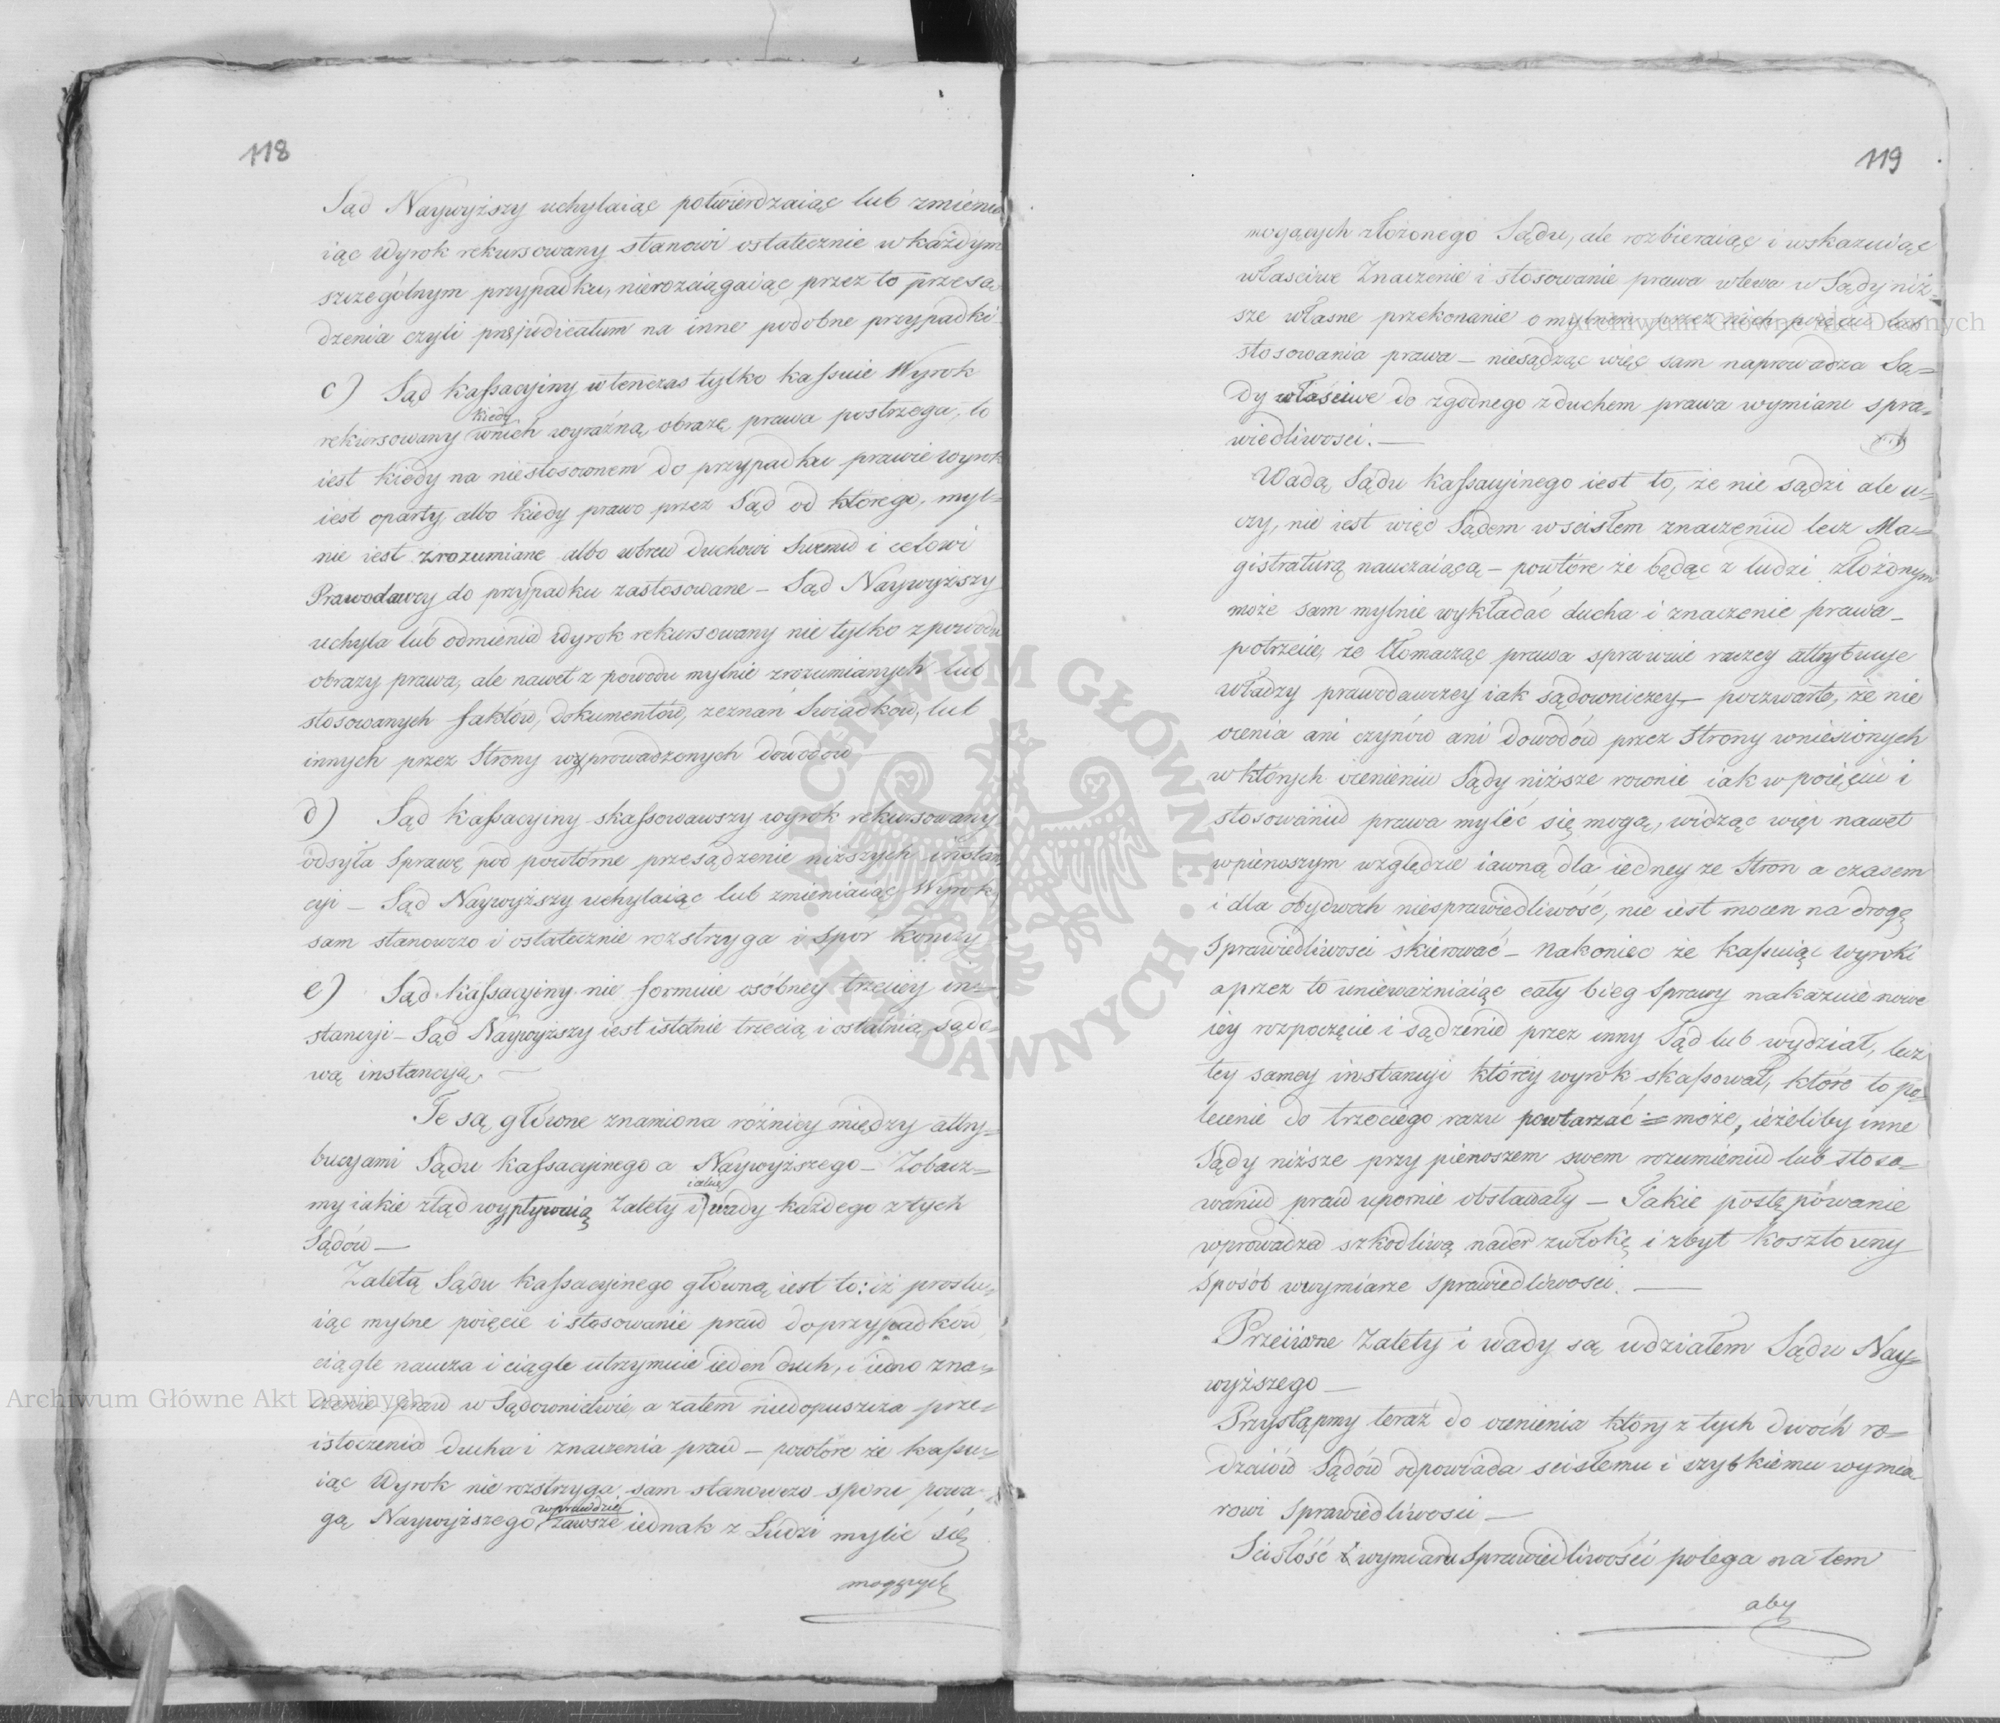 118
Sąd Naywyższy uchylaiąc potwierdzaiąc lub zmieniа
iąc Wyrok rekursowany stanowi ostatecznie w każdym
szczególnym przypadku, nierozciągaiąc przez to przesą
dzenia czyli praejudicatum na inne podobne przypadki
c) Sąd kassacyiny wtenczas tylko kassuie Wyrok
kiedy
rekursowany wnich wyraźną obrazę prawa postrzega, to
iest kiedy na niestosownem do przypadku prawie wyrok
iest oparty, albo kiedy prawo przez Sąd od którego, myl=
nie iest zrozumiane albo wbrew duchowi swemu i celowi
Prawodawcy do przypadku zastosowane – Sąd Naywyższy
uchyla lub odmienia wyrok rekursowany nie tylko z powodu
obrazy prawa, ale nawet z powodu mylnie zrozumianych lub
stosowanych faktów, dokumentów, zeznań Swiadków, lub
innych przez Strony wyprowadzonych dowodów —
d) Sąd kassacyiny skassowawszy wyrok rekursowany
odsyła Sprawę pod powtórne przesądzenie niższych instan
cyi – Sąd Naywyższy uchylaiąc lub zmieniaiąc Wyrok,
sam stanowczo i ostatecznie rozstrzyga i Spór kończy
e) Sąd kassacyiny nie formuie osóbney trzeciey in=
stancyi – Sąd Naywyższy iest istotnie trzecią i ostatnią sądo=
wą instancyą. —
Te są główne znamiona różnicy między attry=
bucyami Sądu kassacyinego a Naywyższego – Zobacz=
my iakie ztąd wypływaią Zalety i wady każdego z tych
Sądów —
Zaletą Sądu kassacyinego główną iest to: iż prostu=
iąc mylne poięcie i stosowanie praw do przypadków
ciągle naucza i ciągle utrzymuie ieden duch, i iedno zna=
czenie praw w Sądownictwie, a zatem niedopuszcza prze=
istoczenia ducha i znaczenia praw – powtóre że kassu=
iąc Wyrok nie rozstrzyga sam stanowczo sporu powa
wprawdzie
gą Naywyższego zawsze iednak z Ludzi mylić się
mogących
119
mogących złożonego Sądu, ale rozbieraiąc i wskazuiąc
właściwe Znaczenie i stosowanie prawa wlewa w Sądy niż=
sze własne przekonanie o mylnem przez nich poięciu lub
stosowania prawa – niesądząc więc sam naprowadza Są=
dy właściwe do zgodnego z duchem prawa wymiaru spra=
wiedliwości. —
Wadą Sądu kassacyinego iest to, że nie sądzi ale u=
czy, nie iest więc Sądem w scisłem znaczeniu lecz Ma=
gistraturą nauczaiącą – powtóre że będąc z ludzi złożonym
może sam mylnie wykładać ducha i znaczenie prawa –
potrzecie, że tłomacząc prawa sprawuie raczey attrybucye
władzy prawodawczey iak sądowniczey – poczwarte, że nie
ocenia ani czynów ani dowodów przez Strony wniesionych
w których ocenieniu Sądy niższe równie iak w poięciu i
stosowaniu prawa mylić się mogą, widząc więc nawet
w pierwszym względzie iawną dla iedney ze Stron a czasem
i dla obydwoch niesprawiedliwość, nie iest mocen na drogę
Sprawiedliwości skierować – nakoniec że kassuiąc wyroki
a przez to unieważniaiąc cały bieg Sprawy nakazuie nowe
iey rozpoczęcie i sądzenie przez inny Sąd lub wydział, lecz
tey samey instancyi którey wyrok skassował, które to po=
lecenie do trzeciego razu powtarzać może, ieżeliby inne
Sądy niższe przy pierwszem swem rozumieniu lub stoso=
waniu praw upornie obstawały – Takie postępówanie
wprowadza szkodliwą nader zwłokę i zbyt kosztowny
sposób w wymiarze Sprawiedliwości. —
Przeciwne Zalety i wady są udziałem Sądu Nay=
wyższego —
Przystąpmy teraz do ocenienia który z tych dwóch ro=
dzaiów Sądów odpowiada scisłemu i szybkiemu wymia
rowi Sprawiedliwości —
Scisłość wymiaru Sprawiedliwości polega na tem
aby
Archiwum Główne Akt Dawnych
Archiwum Główne Akt Dawnych
ARCHIWUM GŁÓWNE AKT DAWNYCH